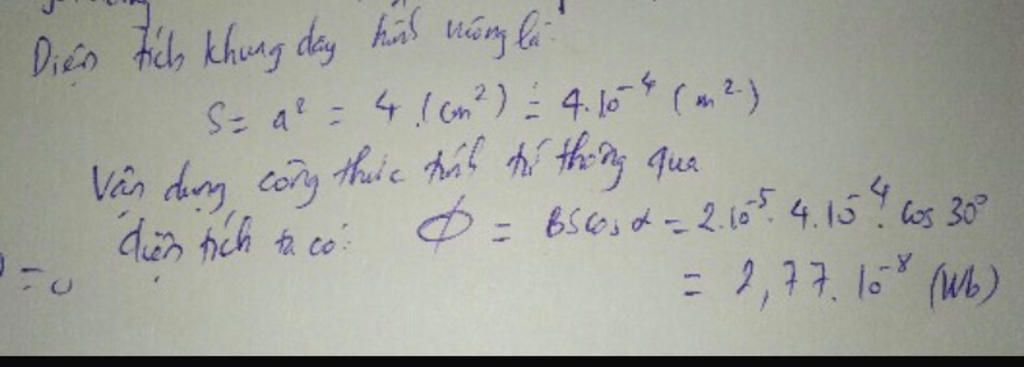 Diện tích khung dây hình vuông là:
S = a² = 4 (cm²) = 4.10⁻⁴ (m²)
Vận dụng công thức tính từ thông qua
diện tích ta có: Φ = BScosα = 2.10⁻⁵.4.10⁻⁴.cos 30°
= 2,77.10⁻⁸ (Wb)